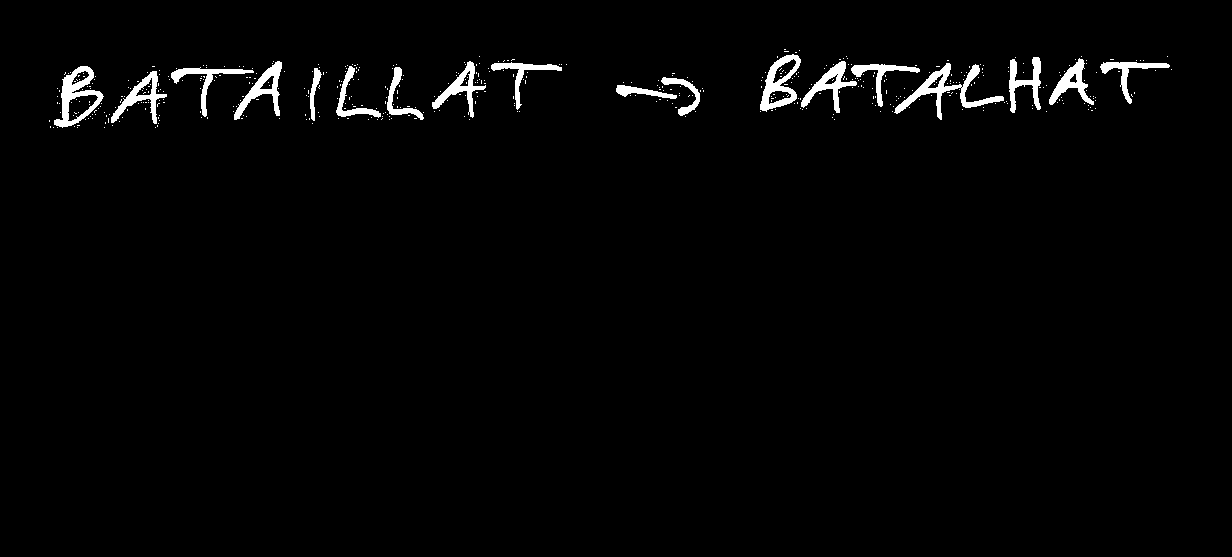 BATAILLAT → BATALHAT